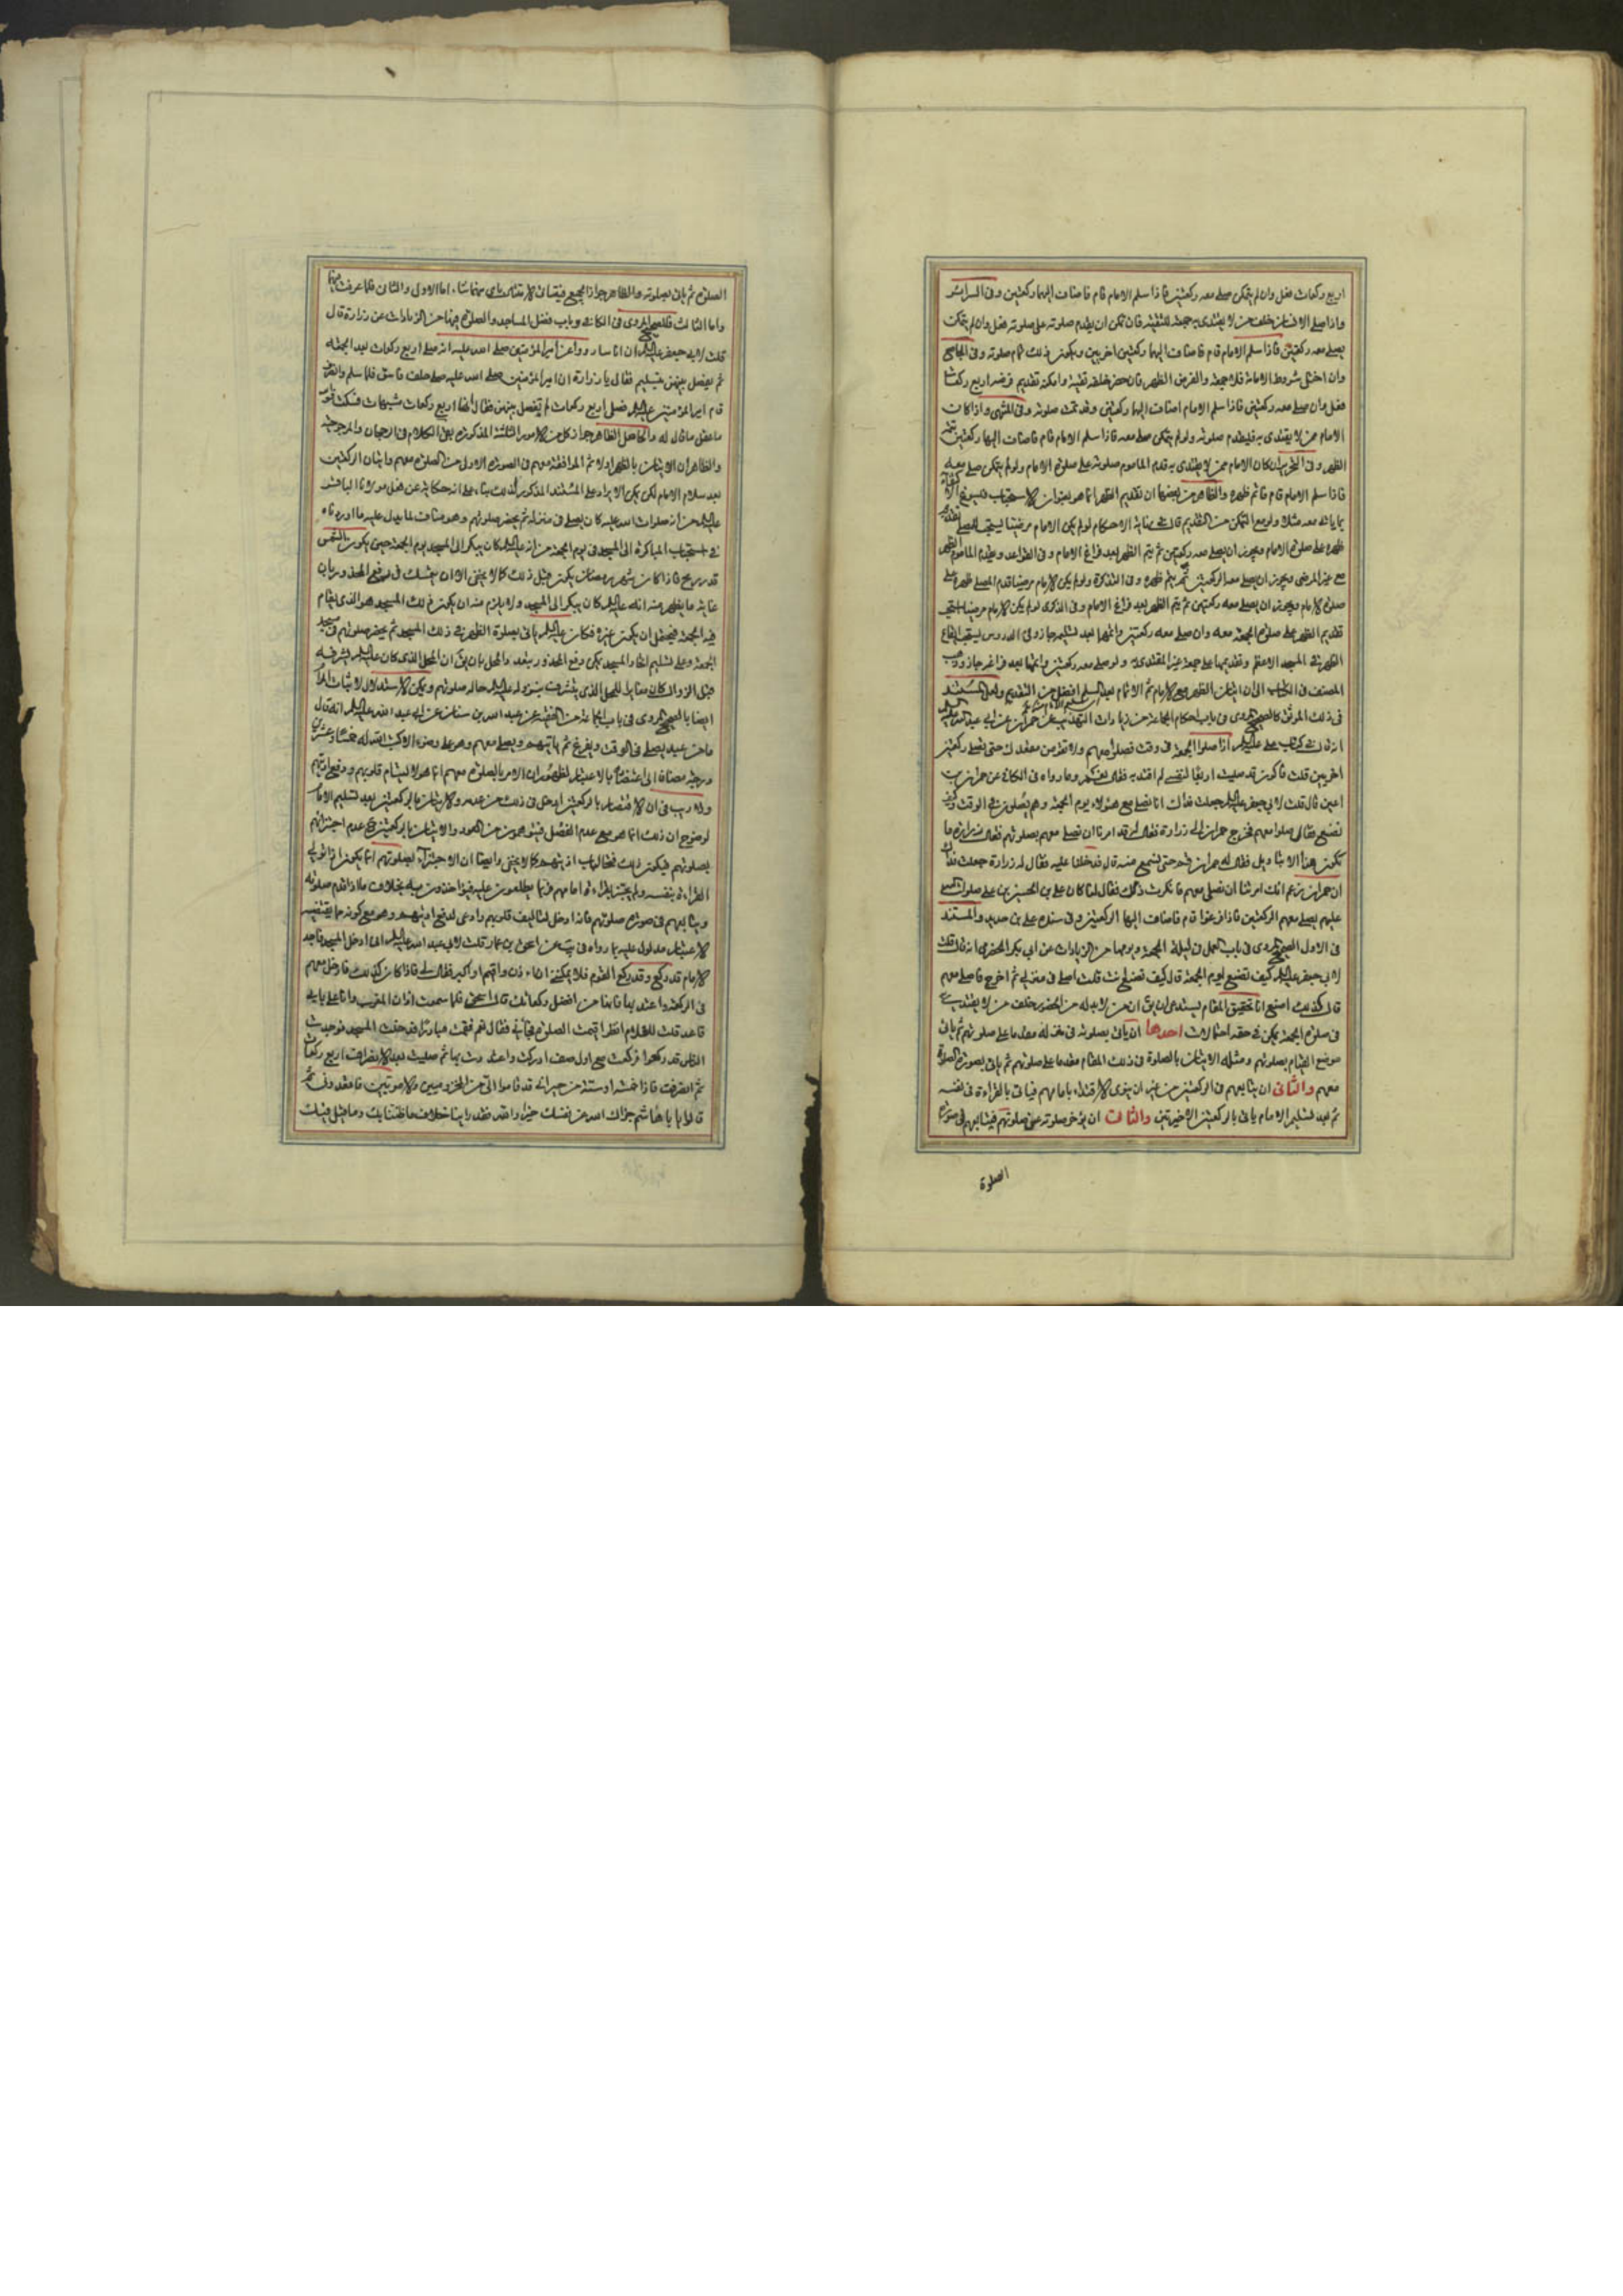 اربع ركعات فعل وان لم يتمكن صلى معه ركعتين فاذا سلم الامام قام فاضاف اليهما ركعتين وفي السرائر
واذا صلى الانسان خلف من لا يقتدى به جمعة للتقية فان تمكن ان يقدم صلوته على صلوته فعل وان لم يتمكن
يصلي معه ركعتين فاذا سلم الامام قام فاضاف اليهما ركعتين اخريين ويكون ذلك تمام صلوته وفي الجامع
وان اختل شروط الامامة فلا جمعة والفرض الظهر فان حضر خلفه تقية وامكنه تقديم فرضه اربع ركعات
فعل وان صلى معه ركعتين فاذا سلم الامام اضاف اليهما ركعتين وقد تمت صلوته وفي المنتهى واذا كان
الامام ممن لا يقتدى به فليقدم صلوته ولو لم يتمكن صلى معه فاذا سلم الامام قام فاضاف اليها ركعتين تتمة
الظهر وفي التحرير ان كان الامام ممن لا يقتدى به قدم الماموم صلوته على صلوة الامام ولو لم يتمكن صلى معه
فاذا سلم الامام قام فاتم ظهره والظاهر من بعضها ان تقديم الظهر انما هو بعنوان الاستحباب
التمكن من التقديم قال في نهاية الاحكام لو لم يكن الامام مرضيا يستحب للمصلي تقديم
ظهره على صلوة الامام ويجوز ان يصلي معه ركعتين ثم يتم الظهر بعد فراغ الامام وفي القواعد ويقدم الماموم الظهر
مع غير المرضي ويجوز ان يصلي معه الركعتين ثم يتم ظهره وفي التذكرة ولو لم يكن الامام مرضيا قدم المصلي ظهره على
صلوة الامام ويجوز ان يصلي معه ركعتين ثم يتم الظهر بعد فراغ الامام وفي الذكرى لو لم يكن الامام مرضيا استحب
تقديم الظهر على صلوة الجمعة معه وان صلى معه ركعتين واتمها بعد تسليمه جاز وفي الدروس يستحب ايقاع
الظهر في المسجد الاعظم وتقديمها على جمعة غير المقتدى به ولو صلى معه ركعتين واتمها بعد فراغه جاز وذهب
المصنف في الكتاب الى ان اتيان الظهر مع الامام ثم الاتمام بعد التسليم افضل من التقديم ولعل المستند
في ذلك الموثق كالصحيح المروي في باب احكام الجماعة من زيادات التهذيب عن حمران عن ابي عبد الله عليه السلم
انه قال في كتاب علي عليه السلم اذا صلوا الجمعة في وقت فصلوا معهم ولا تقومن من مقعدك حتى تصلي ركعتين
اخريين قلت فاكون قد صليت اربعا لنفسي لم اقتد به فقال نعم وما رواه في الكافي عن حمران بن
اعين قال قلت لابي جعفر عليه السلم جعلت فداك انا نصلي مع هؤلاء يوم الجمعة وهم يصلون في الوقت فكيف
نصنع فقال صلوا معهم فخرج حمران الى زرارة فقال له قد امرنا ان نصلي معهم بصلوتهم فقال زرارة ما
يكون هذا الا بتاويل فقال له حمران قم حتى نسمع منه قال فدخلنا عليه فقال له زرارة جعلت فداك
ان حمران زعم انك امرتنا ان نصلي معهم فانكرت ذلك فقال لنا كان علي بن الحسين بن علي صلوات الله
عليهم يصلي معهم الركعتين فاذا فرغوا قام فاضاف اليها الركعتين وفي سنده علي بن حديد والمستند
في الاول الصحيح المروي في باب العمل في ليلة الجمعة ويومها من الزيادات عن ابي بكر الحضرمي انه قال قلت
لابي جعفر عليه السلم كيف تصنع يوم الجمعة قال كيف تصنع انت قلت اصلي في منزلي ثم اخرج فاصلي معهم
قال كذلك اصنع انا تحقيق المقام يستدعي ان يق ان من لا بد له من الحضور خلف من لا يقتدى به
في صلوة الجمعة يمكن في حقه احتمالات احدها ان ياتي بصلوته في منزله مقدما على صلوتهم ثم ياتي
موضع القيام بصلوتهم ومثله الاتيان بالصلوة في ذلك المقام مقدما على صلوتهم ثم ياتي بصورة الصلوة
معهم والثاني ان يتابعهم في الركعتين من غير ان ينوي الاقتداء بامامهم فياتي بالقراءة في نفسه
ثم بعد تسليم الامام ياتي بالركعتين الاخيرتين والثالث ان يؤخر صلوته عن صلوتهم فيتابعهم في صورة
الصلوة
الصلوة ثم ياتي بصلوته والظاهر جواز الجميع اما الاولى والثاني فلما عرفت
واما الثالث فللصحيح المروي في الكافي وباب فضل المساجد والصلوة فيها من الزيادات عن زرارة قال
قلت لابي جعفر عليه السلم ان اناسا رووا عن امير المؤمنين صلى الله عليه انه صلى اربع ركعات بعد الجمعة
لم يفصل بينهن بتسليم فقال يا زرارة ان امير المؤمنين صلى الله عليه صلى خلف فاسق فلما سلم وانصرف
قام امير المؤمنين عليه السلم فصلى اربع ركعات لم يفصل بينهن فقال
ما عقل ما قال له والحاصل الظاهر جواز كل من الامور الثلثة المذكورة بقي الكلام في الرجحان والمرجوحية
والظاهر ان الاتيان بالظهر اولا ثم الموافقة معهم في الصورة الاولى من الصلوة معهم واتيان الركعتين
بعد سلام الامام لكن يمكن الايراد على المستند المذكور لذلك بناء على انه حكاية عن فعل مولانا الباقر
عليه السلم من انه صلوات الله عليه كان يصلي في منزله ثم يحضر صلوتهم وهو مناف لما يدل عليه ما اوردناه
في استحباب المباكرة الى المسجد في يوم الجمعة من انه عليه السلم كان يبكر الى المسجد يوم الجمعة حين يكون الشمس
قدر رمح فاذا كان شهر رمضان يكون قبل ذلك كما لا يخفى الا ان يتمسك في دفع المحذور بان
غاية ما يظهر منه انه عليه السلم كان يبكر الى المسجد ولا يلزم منه ان يكون ذلك المسجد هو الذي يقام
فيه الجمعة فيحتمل ان يكون غيره فكان عليه السلم ياتي بصلوة الظهر في ذلك المسجد ثم يحضر صلوتهم في مسجد
الجمعة وعلى تسليم اتحاد المسجد يمكن دفع المحذور
قبل الزوال كان مغايرا للمحل الذي يتشرف بنزوله عليه السلم حال صلوتهم ويمكن الاستدلال لاثبات المرام
ايضا بالصحيح المروي في باب الجماعة من الفقيه عن عبد الله بن سنان عن ابي عبد الله عليه السلم انه قال
ما من عبد يصلي في الوقت ويفرغ ثم ياتيهم ويصلي معهم وهو على وضوء الا كتب الله له خمسا وعشرين
درجة مضافا الى اعتضاده بالاعتبار لظهور ان الامر بالصلوة معهم انما هو لالتيام قلوبهم ودفع اذيتهم
ولا ريب في ان الاقتصار بالركعتين ادخل في ذلك من عدمه والاتيان بالركعتين بعد تسليم الامام
لوضوح ان ذلك انما هو مع عدم الفصل
بصلوتهم فيكون ذلك فتحا لباب اذيتهم كما لا يخفى وايضا ان الاجتزاء بصلوتهم انما يكون اذا نوى
القراءة بنفسه ولم يجتز بقراءة امامهم فربما يطلعون عليه فيؤاخذون منه بخلاف ما اذا قدم صلوته
ويتابعهم في صورة صلوتهم فانه ادخل لتاليف قلوبهم وادعى لدفع اذيتهم وهو مع كونه مما يقتضيه
الاعتبار مدلول عليه بما رواه في يب عن اسحق بن عمار قلت لابي عبد الله عليه السلم اني ادخل المسجد فاجد
الامام قد ركع وقد ركع القوم فلا يمكنني ان اؤذن واقيم او اكبر فقال لي فاذا كان كذلك فادخل معهم
في الركعة واعتد بها فانها من افضل ركعاتك قال اسحق فلما سمعت اذان المغرب وانا على بابي
قاعد قلت للغلام انظر اقيمت الصلوة فجاءني فقال نعم فقمت مبادرا فدخلت المسجد فوجدت
الناس قد ركعوا فركعت مع اول صف ادركت واعتددت بها ثم صليت بعد الانصراف اربع ركعات
ثم انصرفت فاذا خمسة او ستة من جيراني قد قاموا الي من المخزوميين والامويين فاقعدوني ثم
قالوا يا با هاشم جزاك الله عن نفسك خيرا فقد والله راينا خلاف ما ظننا بك وما قيل فيك